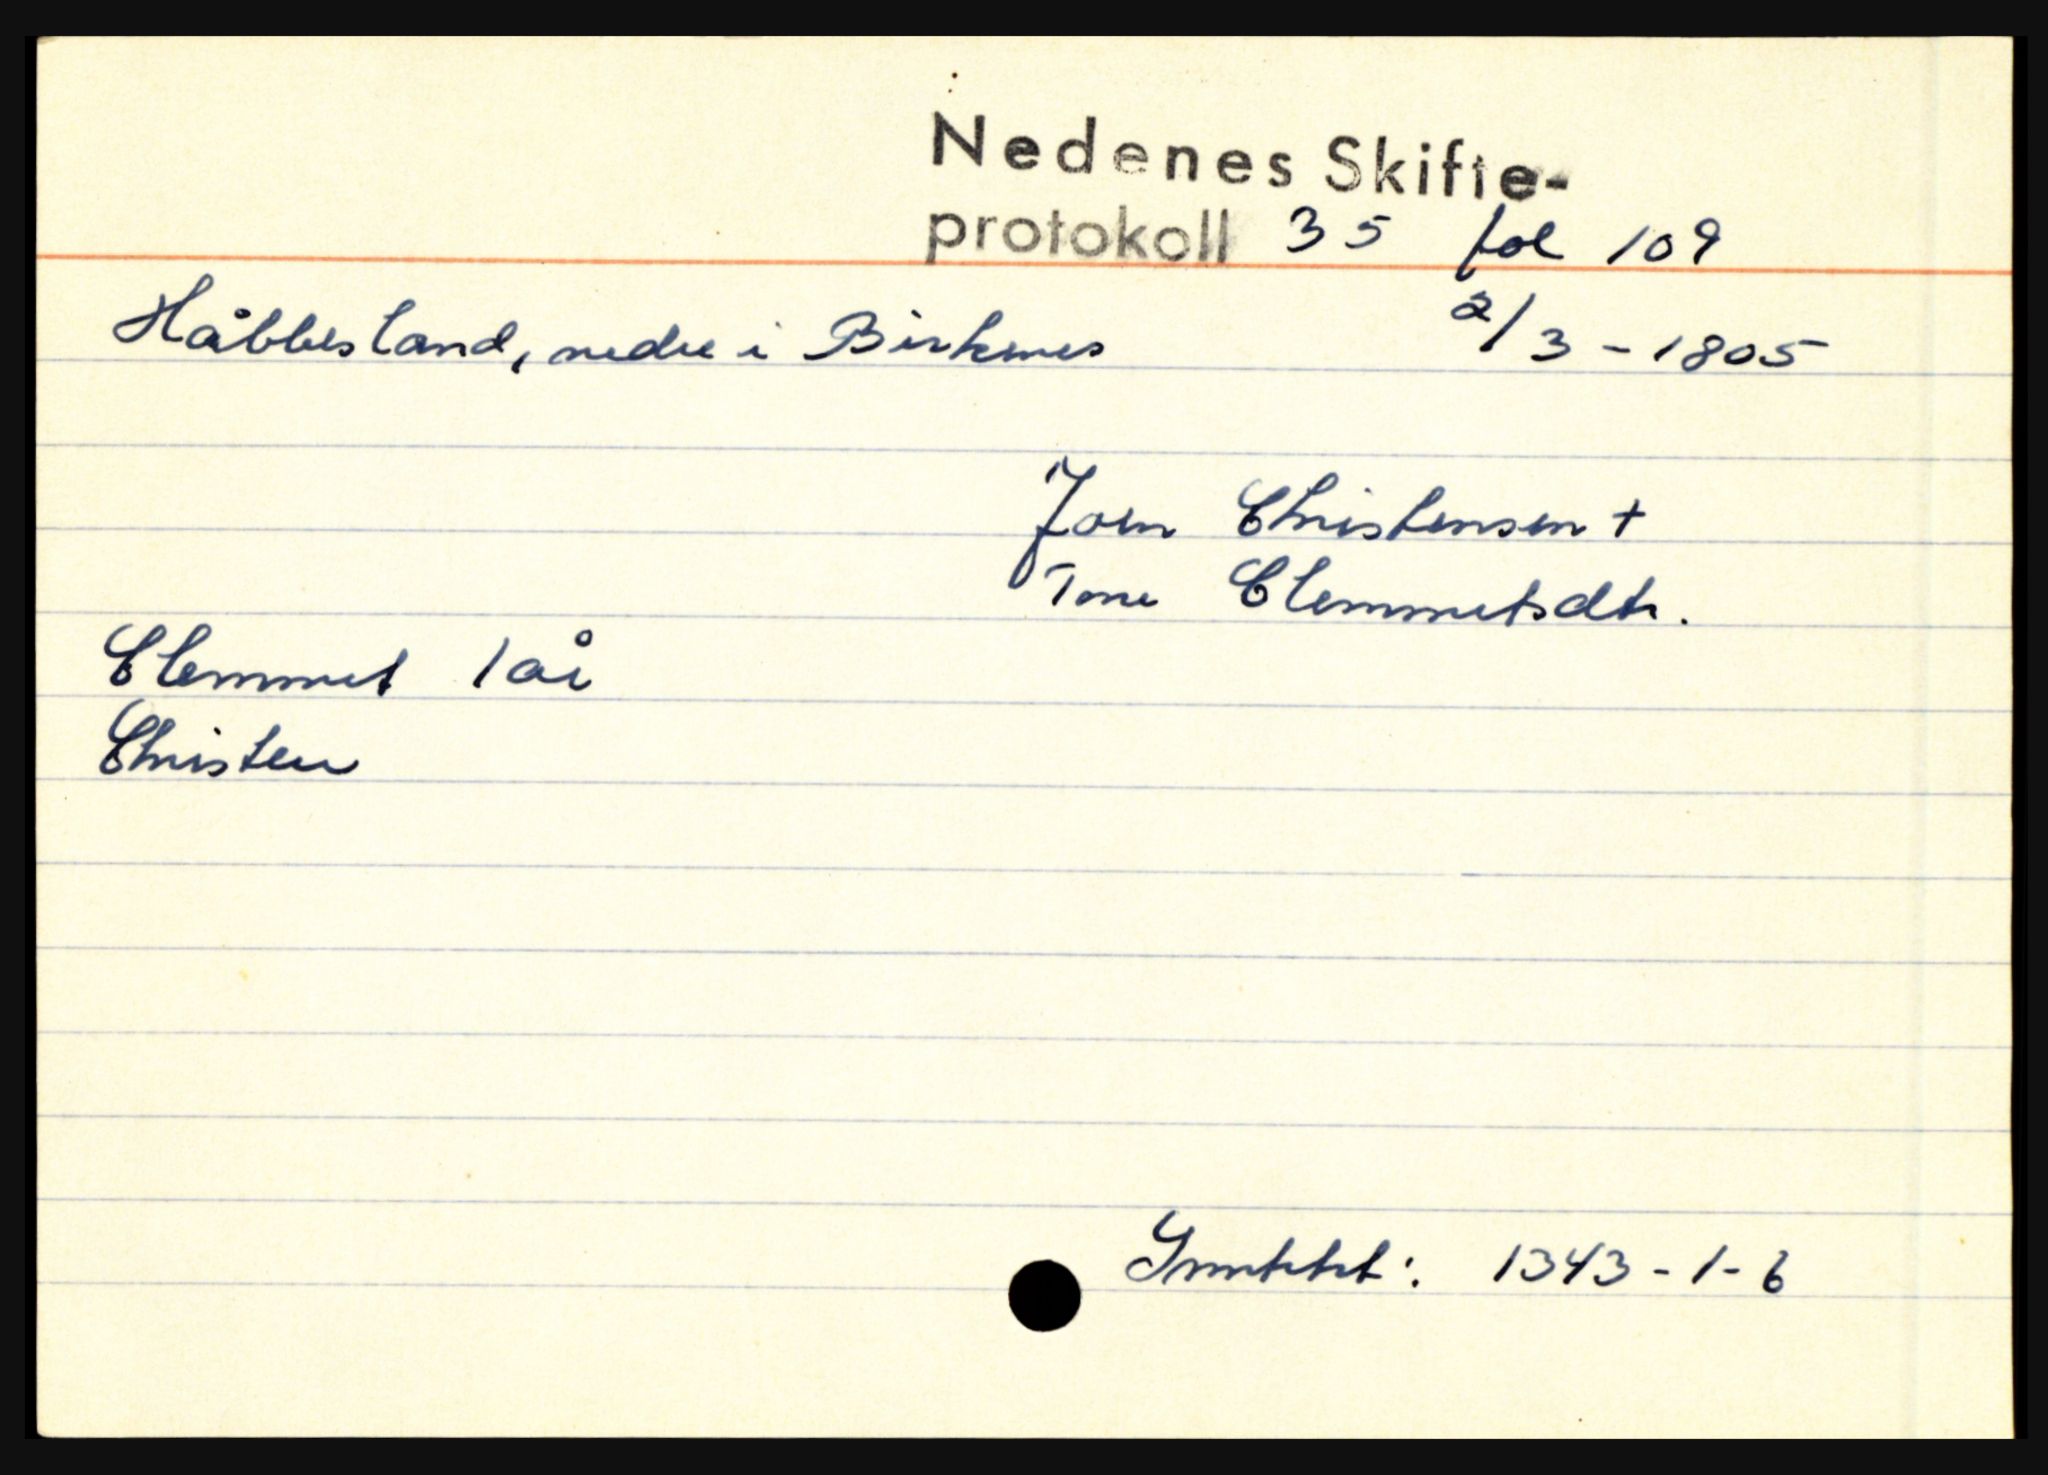 Nedenes Skifte-
protokoll 35 fol 109
Håbbesland, nedre i Birkenes 2/3 - 1805
Joen Christensen +
Tone Clemmetsdtr.
Clemmet 1 år
Christen
1343 - 1 - 6